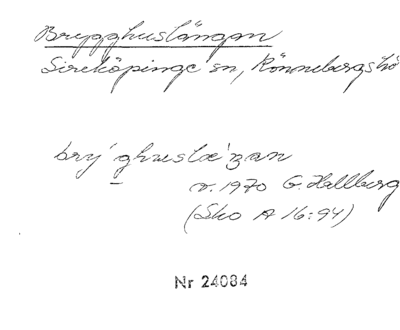 Brygghuslängan
Sireköpinge sn, Rönnebergs hd
brý ghuslæ̀ŋan
v. 1970 G. Hallberg
(Sko A 16:94)
Nr 24084